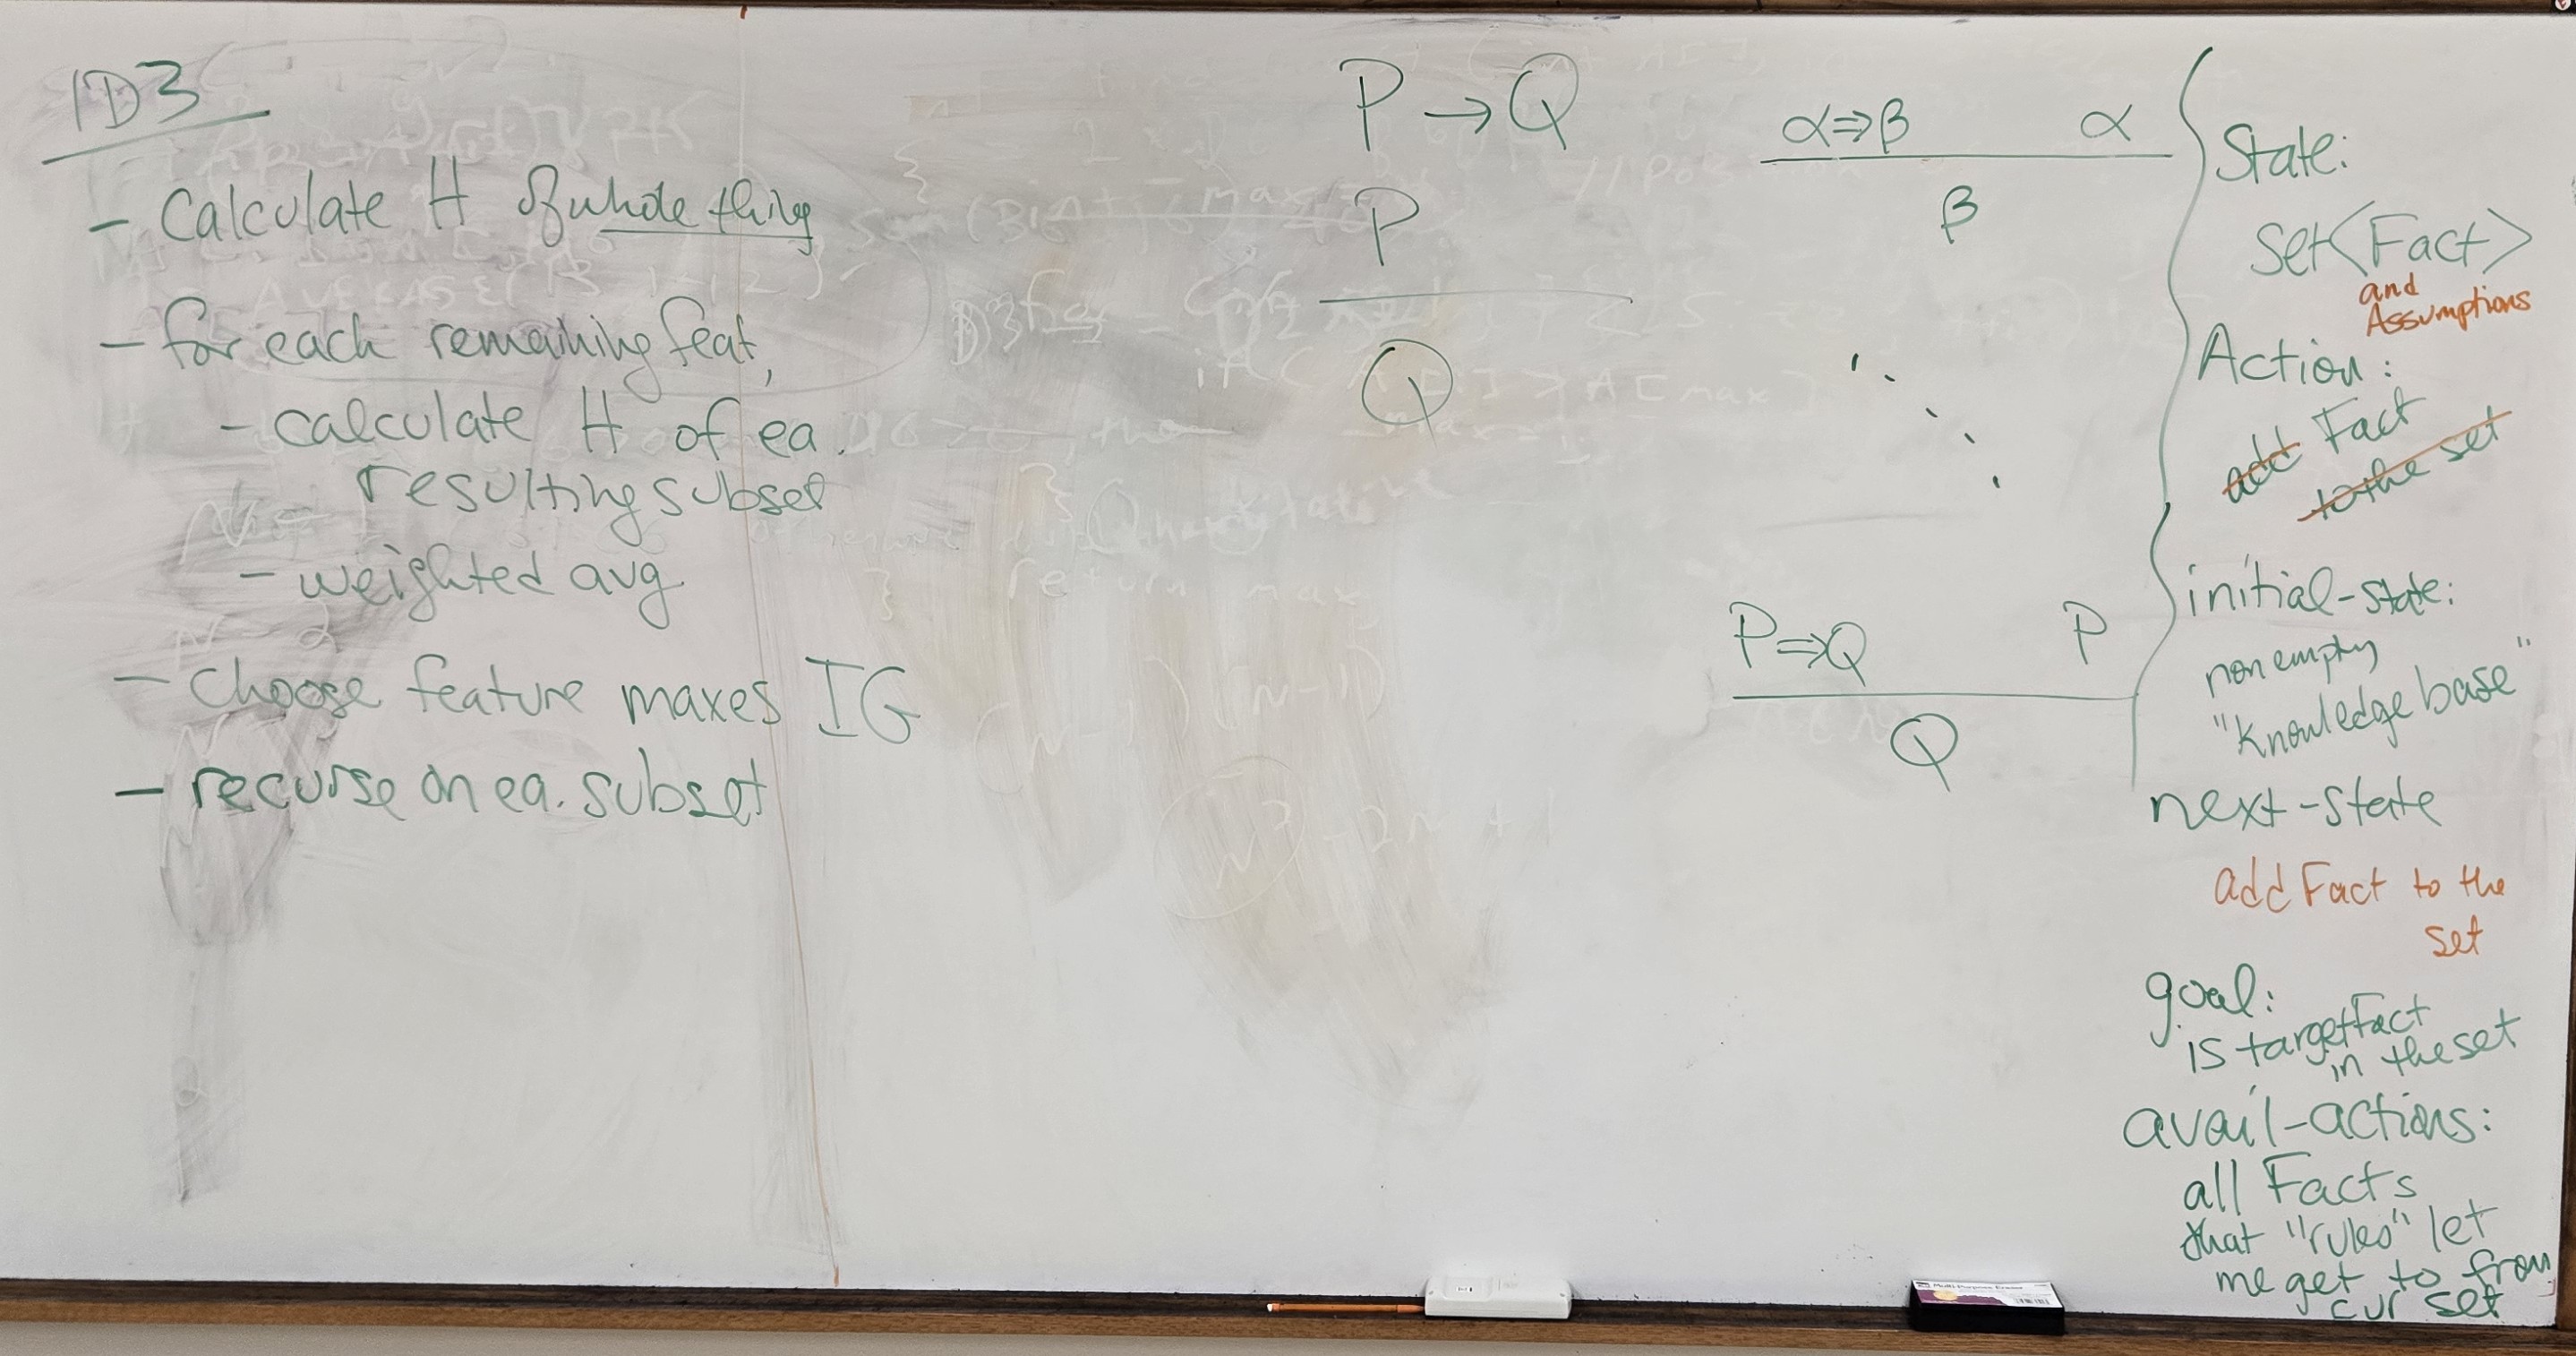 ID3
- Calculate H of whole thing
- for each remaining feat,
- calculate H of ea.
resulting subset
- weighted avg
- choose feature maxes IG
- recurse on ea. subset
P → Q
P
Q
α⇒β α
β
P⇒Q P
Q
State:
Set<Fact>
and
Assumptions
Action:
add Fact
to the set
initial-state:
nonempty
"Knowledge base"
next-state
add Fact to the
set
goal:
is target Fact
in the set
avail-actions:
all Facts
that "rules" let
me get to from
cur set